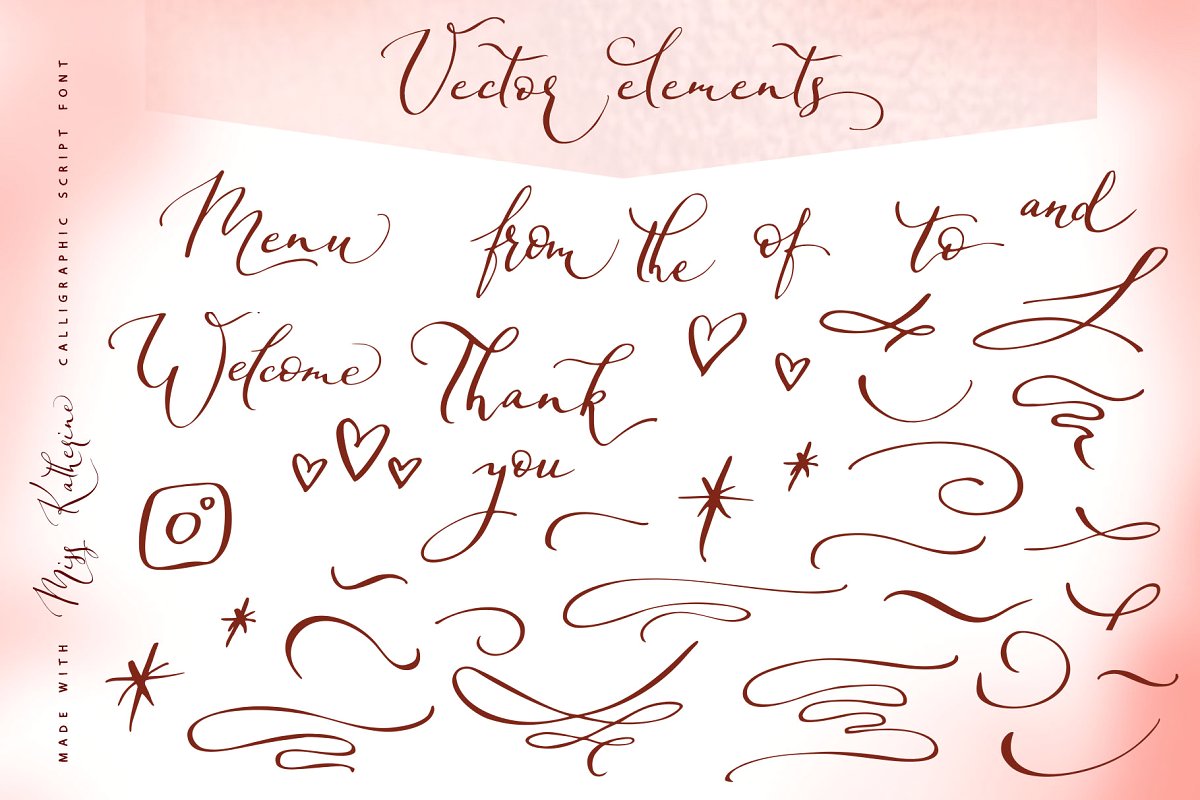 Vector elements
Menu from the of to and
Welcome Thank
you
MADE WITH Miss Katherine CALLIGRAPHIC SCRIPT FONT